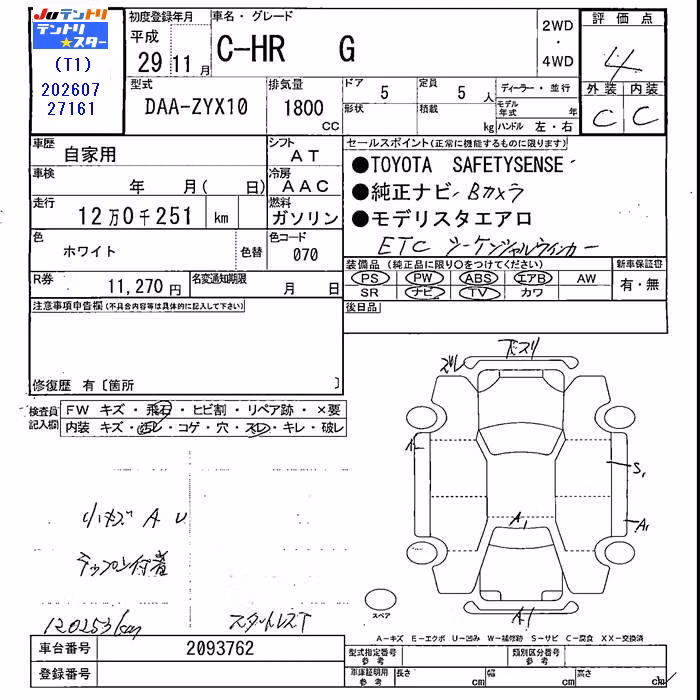 JUテントリ
テントリ★スター
(T1)
202607
27161
初度登録年月
平成
29 11月
車名・グレード
C-HR G
2WD
・
4WD
評価点
4
外装 内装
C C
型式
DAA-ZYX10
排気量
1800
CC
ドア
5
形状
定員
5 人
積載
kg
ディーラー・並行
モデル年式 年
ハンドル 左・右
車歴
自家用
シフト
AT
車検
年 月( 日)
冷房
AAC
走行
12万0千251 km
燃料
ガソリン
色
ホワイト
色替
色コード
070
R券
11,270円
名変通知期限
月 日
セールスポイント(正常に機能するものに限ります)
●TOYOTA SAFETYSENSE
●純正ナビ Bカメラ
●モデリスタエアロ
ETC シーケンシャルウィンカー
装備品(純正品に限り○をつけてください)
PS PW ABS エアB AW
SR ナビ TV カワ
新車保証書
有・無
後日品
注意事項申告欄(不具合内容等は具体的に記入して下さい)
修復歴 有〔箇所 〕
検査員記入欄
FW キズ・飛石・ヒビ割・リペア跡・×要
内装 キズ・汚レ・コゲ・穴・スレ・キレ・破レ
ズレ
S1
A1
A1
A1
小キズ A U
120253km
スタットレスT
スペア
A-キズ E-エクボ U-凹み W-補修跡 S-サビ C-腐食 XX-交換済
車台番号
2093762
登録番号
型式指定番号
参考
類別区分番号
参考
車庫証明用
参考
長さ cm
幅 cm
高さ cm